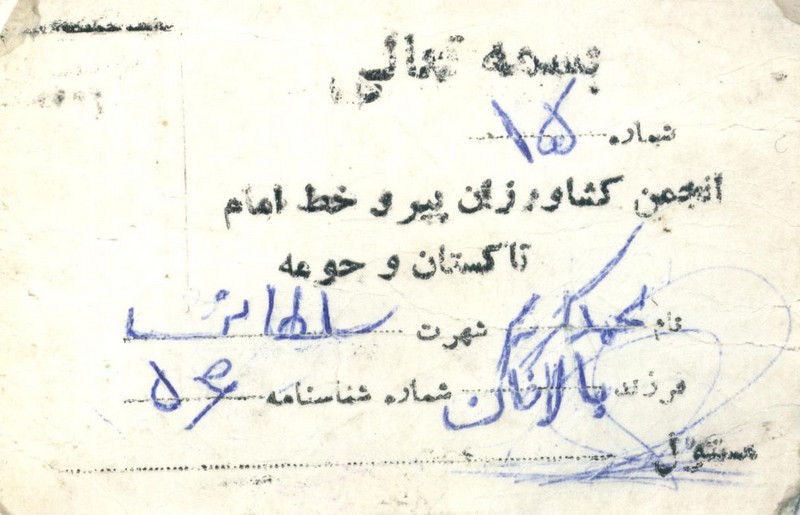 بسمه تعالی
شماره ۱۵
انجمن کشاورزان پیرو خط امام
تاکستان و حومه
نام محمد کریم شهرت سلطانی
فرزند بالاخان شماره شناسنامه ۵۶
مسئول